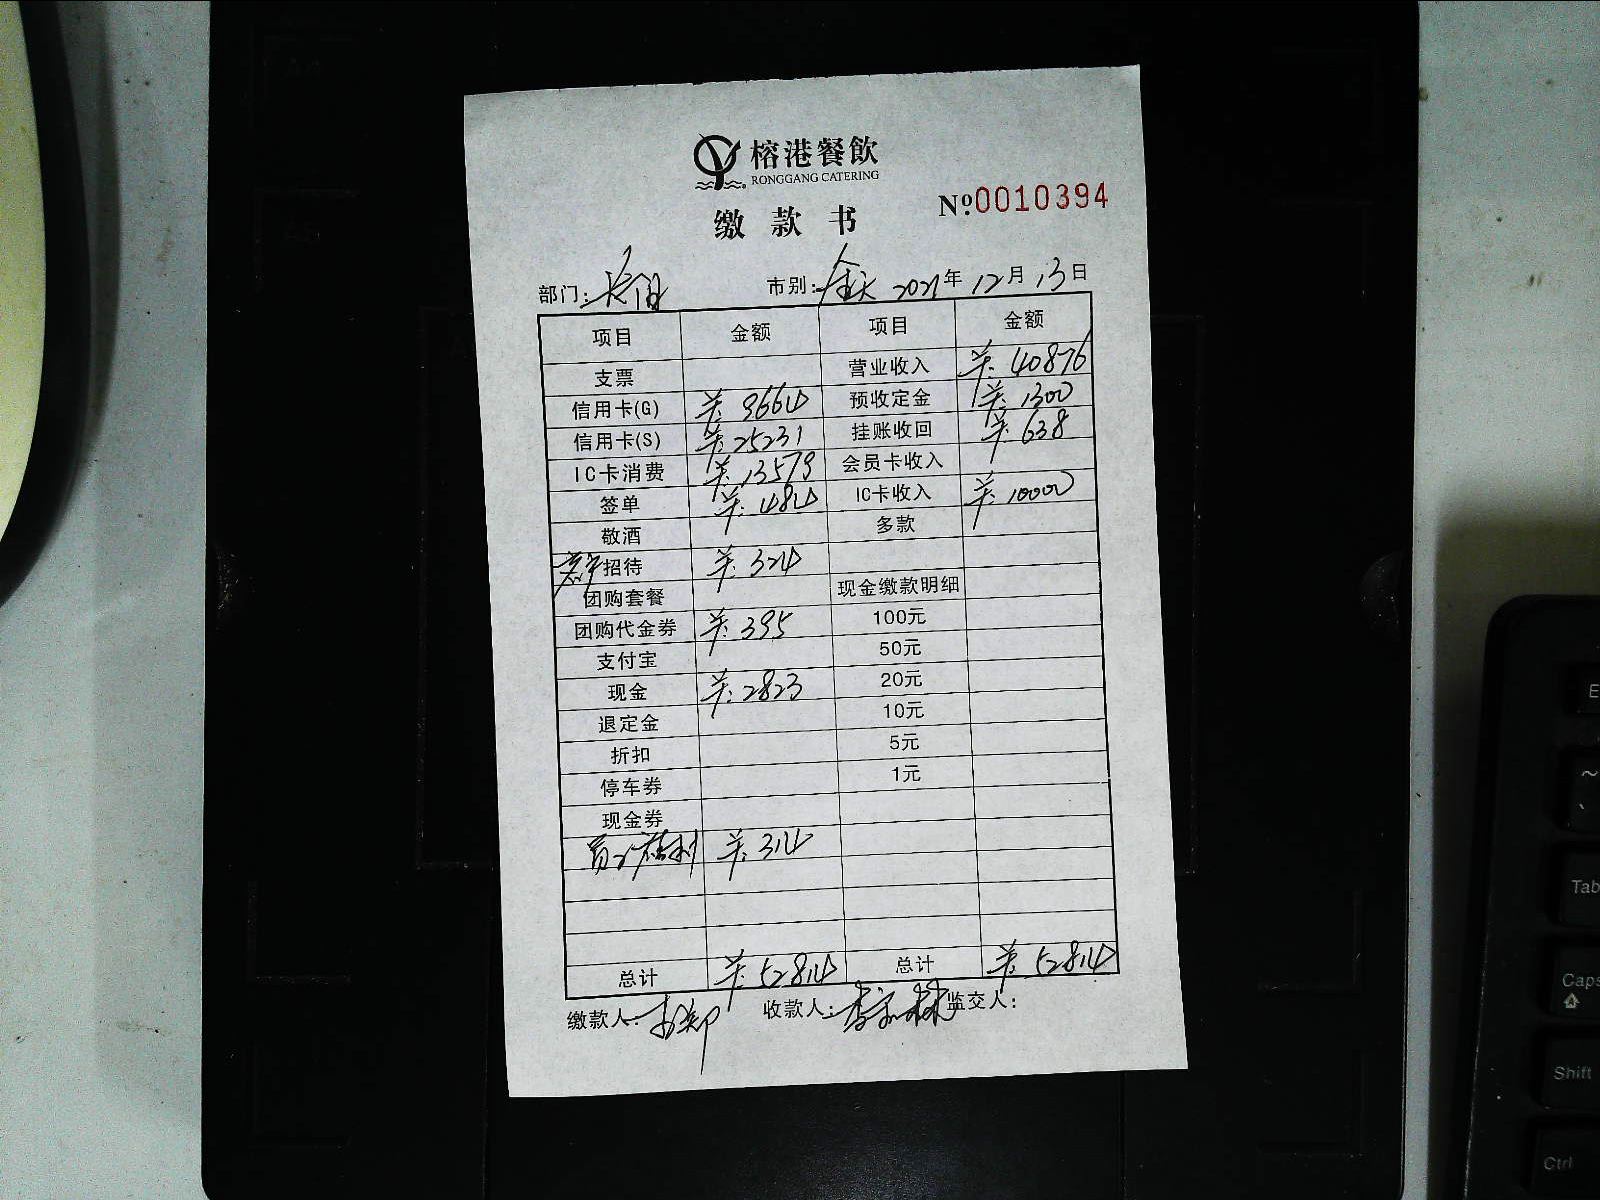 榕港餐飲
RONGGANG CATERING
缴款书
Nº.0010394
部门: 市别:全天 2021年12月13日
项目 金额 项目 金额
支票 营业收入 ¥:40876
信用卡(G) ¥:9664 预收定金 ¥:1300
信用卡(S) ¥:25231 挂账收回 ¥:638
IC卡消费 ¥:13579 会员卡收入
签单 ¥:484 IC卡收入 ¥:10000
敬酒 多款
招待 ¥:324
团购套餐 现金缴款明细
团购代金券 ¥:395 100元
支付宝 50元
现金 ¥:2823 20元
退定金 10元
折扣 5元
停车券 1元
现金券
员工福利 ¥:314
总计 ¥:52814 总计 ¥:52814
缴款人: 收款人: 监交人:
E
~
Tab
Caps
Shift
Ctrl